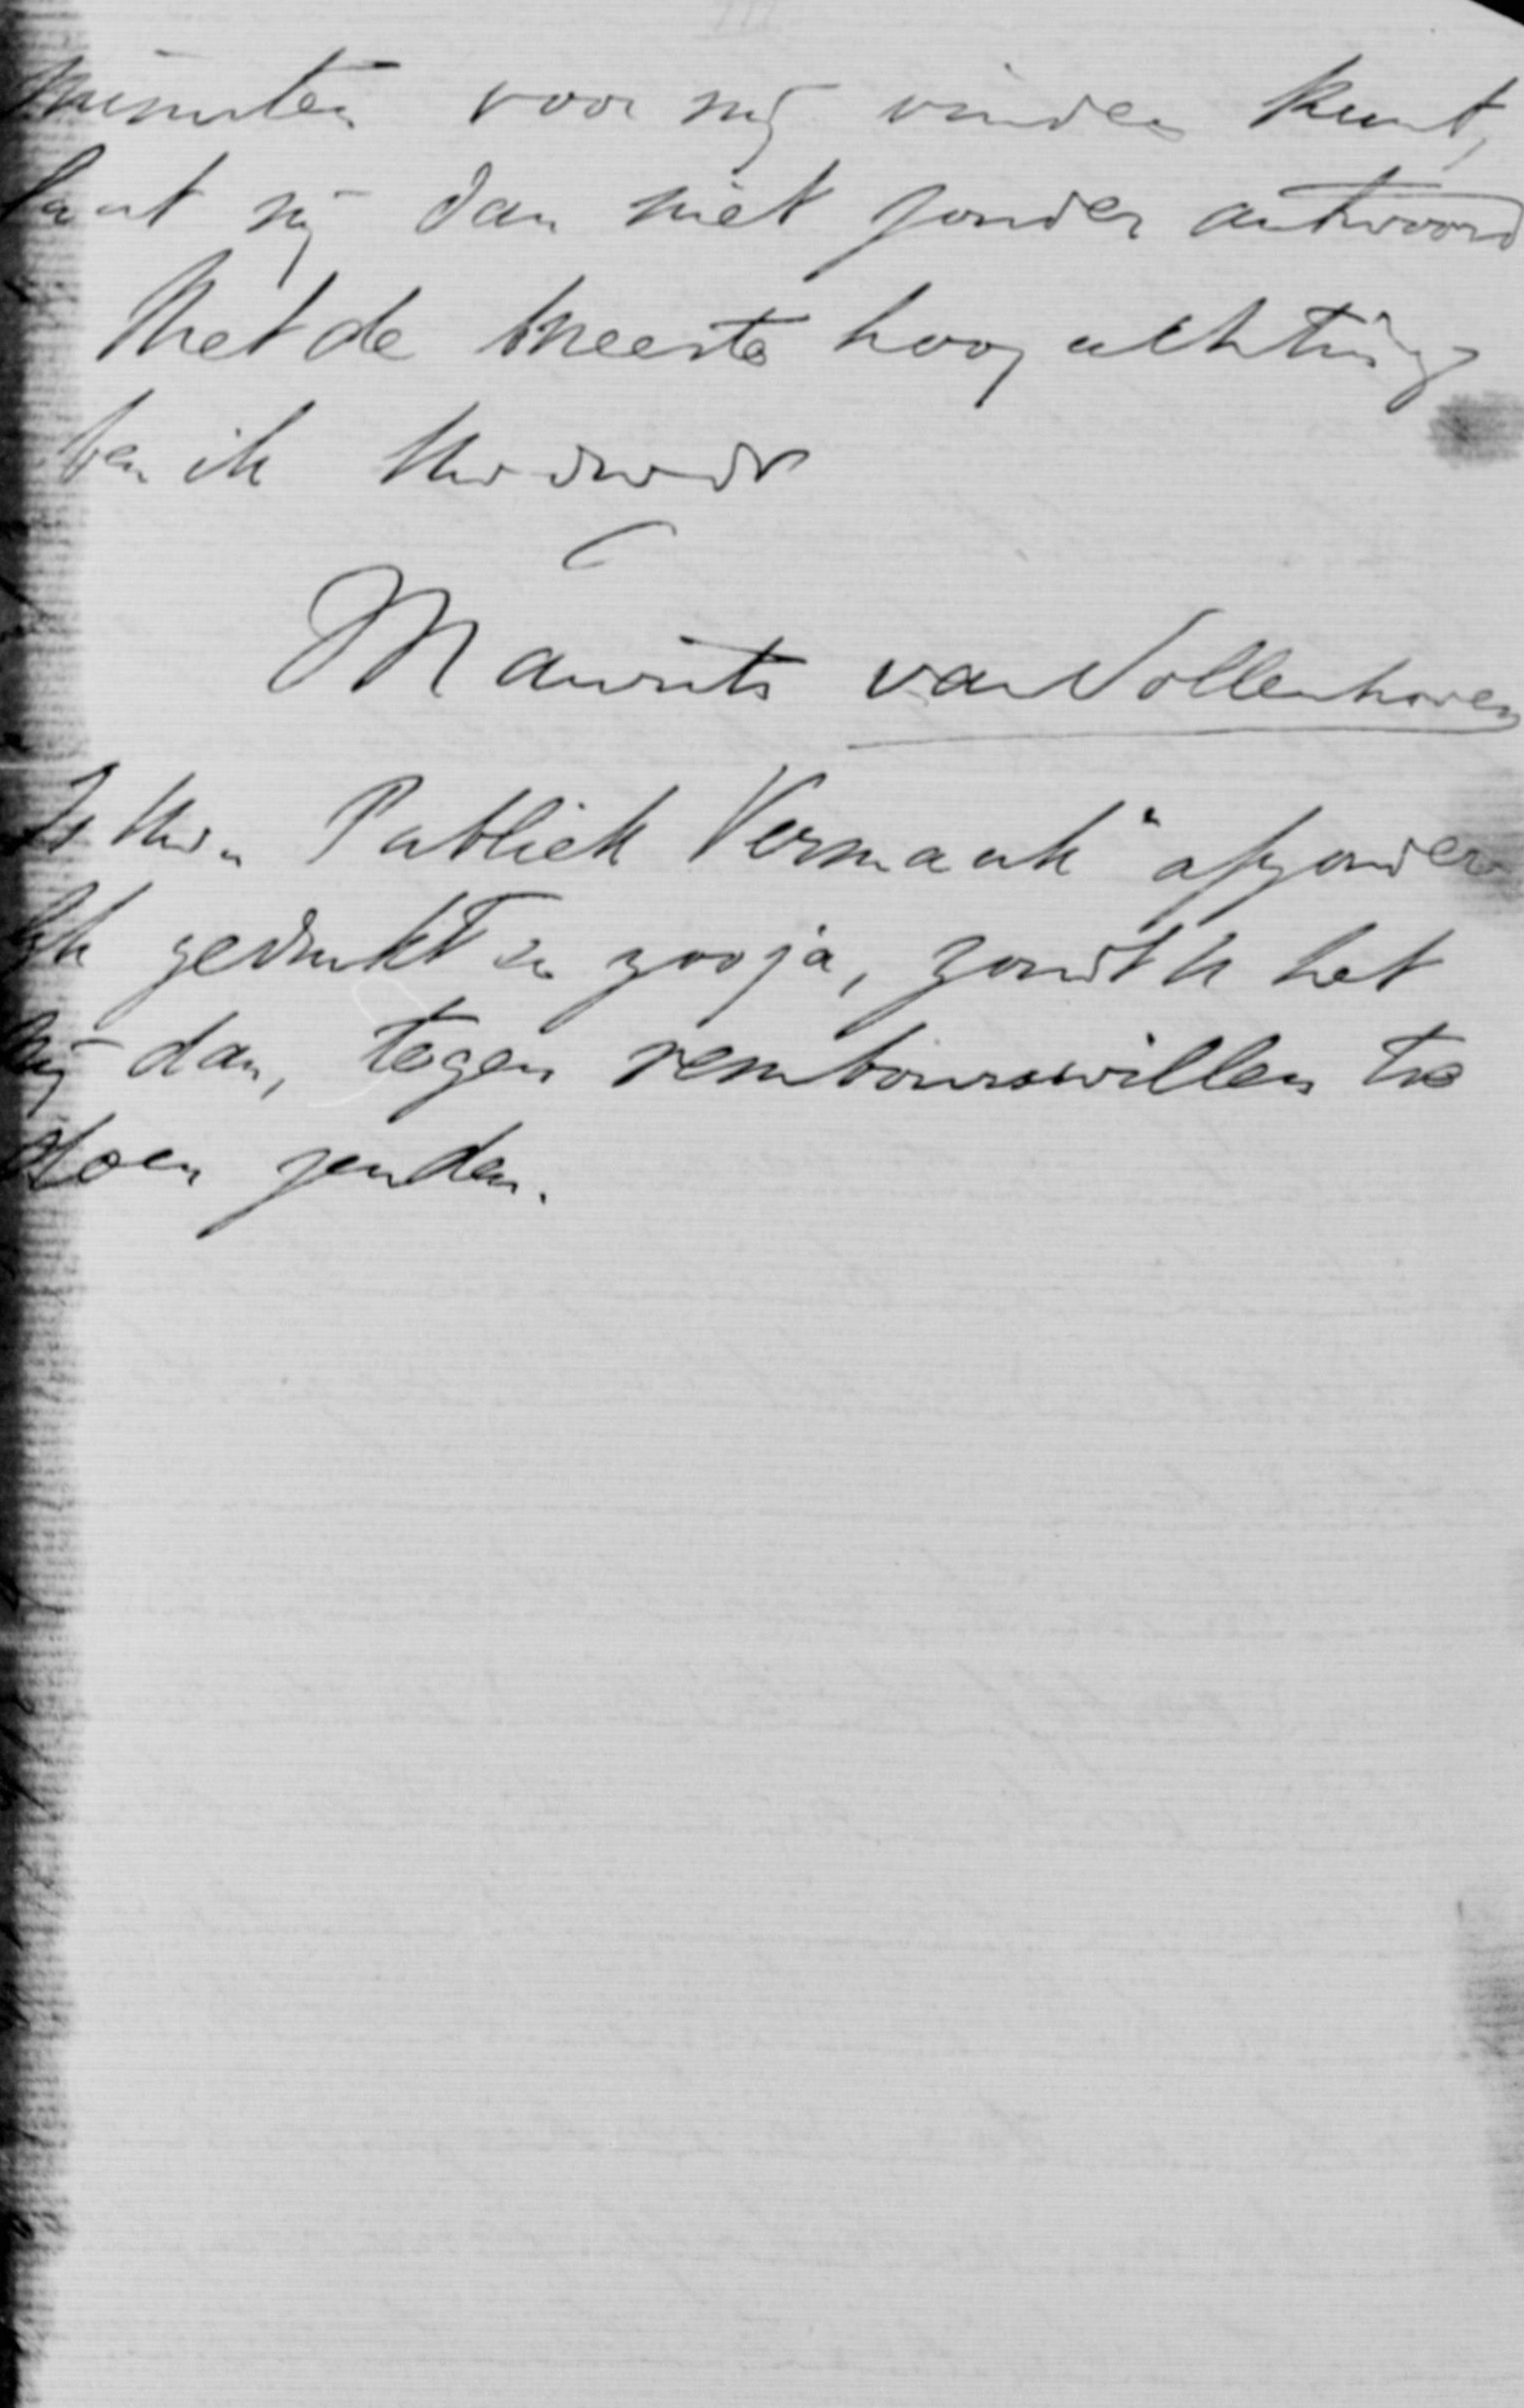 minuten voor mij vinden kunt,
laat mij dan niet zonder antwoord
Met de meeste hoogachting
ben ik Uw dwdr
Maurits van Vollenhoven
Is Uw „Publiek Vermaak" afzonder
lijk gedrukt en zoo ja, zoudt U het
mij dan, tegen rembours willen te
doen zenden.